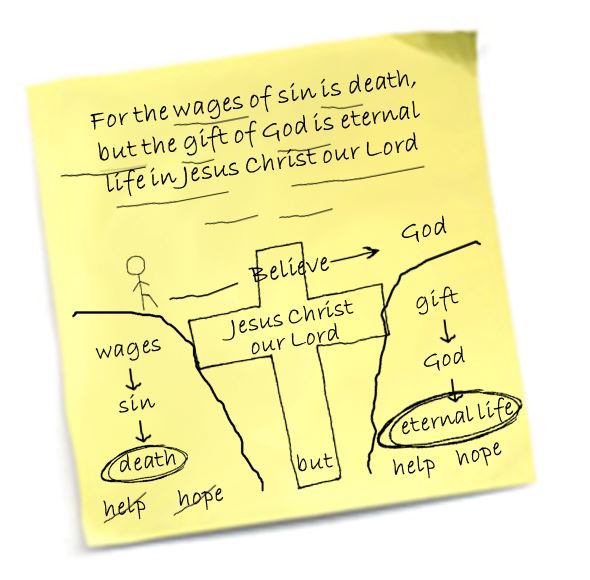 For the wages of sin is death,
but the gift of God is eternal
life in Jesus Christ our Lord
God
Believe
Jesus Christ
our Lord
but
wages
sin
death
help hope
gift
God
eternal life
help hope